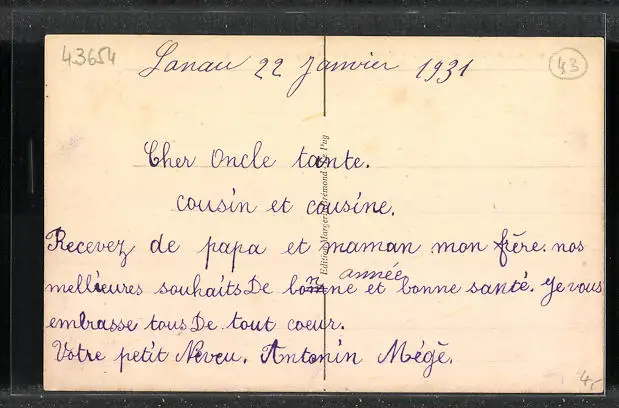 43654
43
Lanau 22 Janvier 1931
Cher Oncle tante.
cousin et cousine.
Recevez de papa et maman mon frère. nos
année
mellieures souhaits De bonne et bonne santé. Je vous
embrasse tous De tout coeur.
Votre petit Neveu. Antonin Mégè.
Edition Margerit-Brémond Le Puy
4,-